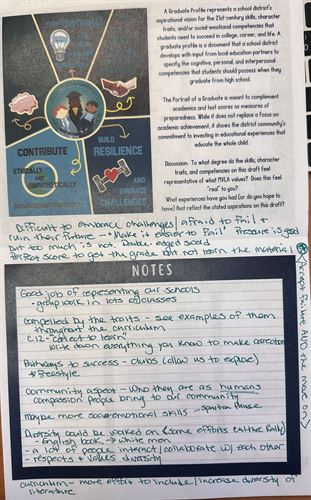 THINK CRITICALLY
CONTRIBUTE
ETHICALLY
AND
EMPATHETICALLY
BUILD
RESILIENCE
AND
EMBRACE
CHALLENGES
A Graduate Profile represents a school district's
aspirational vision for the 21st century skills, character
traits, and/or social-emotional competencies that
students need to succeed in college, career, and life. A
graduate profile is a document that a school district
develops with input from local education partners to
specify the cognitive, personal, and interpersonal
competencies that students should possess when they
graduate from high school.
The Portrait of a Graduate is meant to complement
academic and test scores as measures of
preparedness. While it does not replace a focus on
academic achievement, it shows the district community's
commitment to investing in educational experiences that
educate the whole child.
Discussion: To what degree do the skills, character
traits, and competencies on this draft feel
representative of what MVLA values? Does this feel
"real" to you?
What experiences have you had (or do you hope to
have) that reflect the stated aspirations on this draft?
Difficult to embrace challenges/afraid to fail &
ruin their future → "Make it easier to fail" Pressure is good
but too much is not. Double-edged sword
Perfect score to get the grade but not learn the material
Accept failure AND then move on
NOTES
Good job of representing our schools
- group work in lots of classes
Compelled by the traits - see examples of them
throughout the curriculum
C12 - collect to learn
Write down everything you know to make corrections
Pathways to success - clubs (allow us to explore)
+ freestyle
Community aspect - Who they are as humans
Compassion people bring to our community
Maybe more socioemotional skills - Spartan Pause
Diversity could be worked on (some efforts culture rally)
- English books → white men
- a lot of people interact/collaborate w/ each other
- respects + values diversity
curriculum - more effort to include/increase diversity of
literature